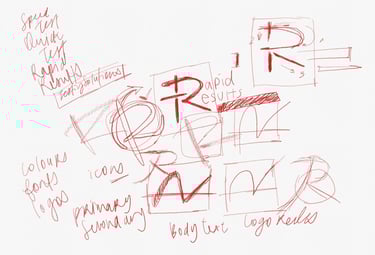 Speed
Test
Quick
Test
Rapid
Results
R
R
apid
esults
R
colours
fonts
logos
icons
primary
secondary
Body text
R